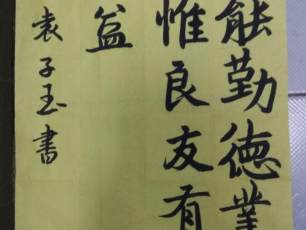 能勤德業
惟良友有
益
袁子玉書